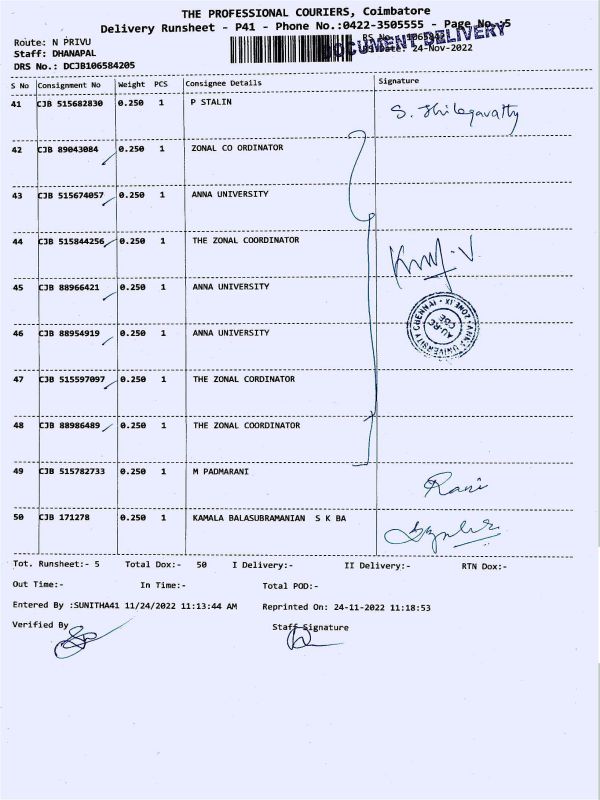 THE PROFESSIONAL COURIERS, Coimbatore
Delivery Runsheet - P41 - Phone No.:0422-3505555 - Page No.:5
DOCUMENT DELIVERY
Route: N PRIVU
RS No.:
Staff: DHANAPAL
RS Date: 24-Nov-2022
DRS No.: DCJB106584205
S No Consignment No Weight PCS Consignee Details Signature
41 CJB 515682830 0.250 1 P STALIN S. Thilagavathy
42 CJB 89043084 0.250 1 ZONAL CO ORDINATOR
43 CJB 515674057 0.250 1 ANNA UNIVERSITY
44 CJB 515844256 0.250 1 THE ZONAL COORDINATOR
45 CJB 88966421 0.250 1 ANNA UNIVERSITY
46 CJB 88954919 0.250 1 ANNA UNIVERSITY
ANNA UNIVERSITY CHENNAI ZONE-IX
AU-RC
COE
47 CJB 515597097 0.250 1 THE ZONAL CORDINATOR
48 CJB 88986489 0.250 1 THE ZONAL COORDINATOR
49 CJB 515782733 0.250 1 M PADMARANI Rani
50 CJB 171278 0.250 1 KAMALA BALASUBRAMANIAN S K BA
Tot. Runsheet:- 5 Total Dox:- 50 I Delivery:- II Delivery:- RTN Dox:-
Out Time:- In Time:- Total POD:-
Entered By :SUNITHA41 11/24/2022 11:13:44 AM Reprinted On: 24-11-2022 11:18:53
Verified By Staff Signature